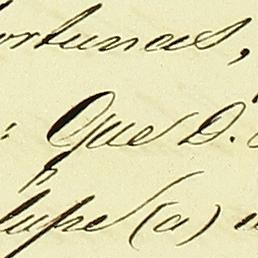 ortunas,
: Que D.
lupe (a)